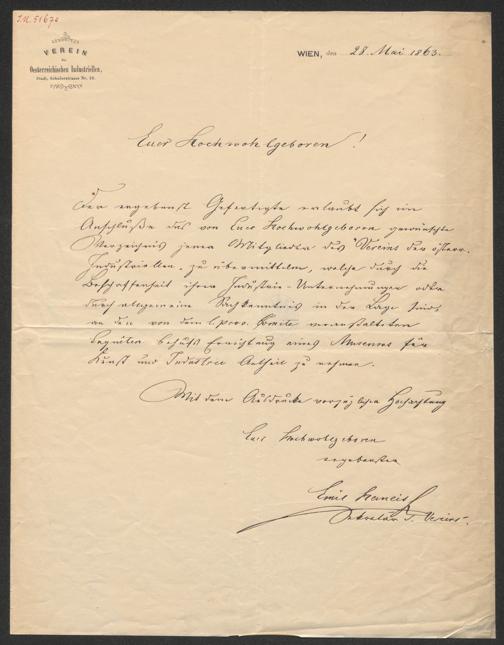 I.N. 5167
VEREIN
der
Oesterreichischen Industriellen,
Stadt,
WIEN, den 28. Mai 1863.
Euer Hochwohlgeboren!
Der ergebenst Gefertigte erlaubt sich im
Anschluße das von Euer Hochwohlgeboren gewünschte
Verzeichnis jener Mitglieder des Vereins der österr.
Industriellen, zu übermitteln, welche durch die
Beschaffenheit ihrer Industrie-Unternehmungen oder
durch allgemeine Sachkenntnis in der Lage sind,
an den von dem Comite veranstalteten
behufs Errichtung eines Museums für
Kunst und Industrie Antheil zu nehmen.
Mit dem Ausdrucke vorzüglicher Hochachtung
Euer Hochwohlgeboren
ergebenster
Emil
Sekretär d. Vereins.